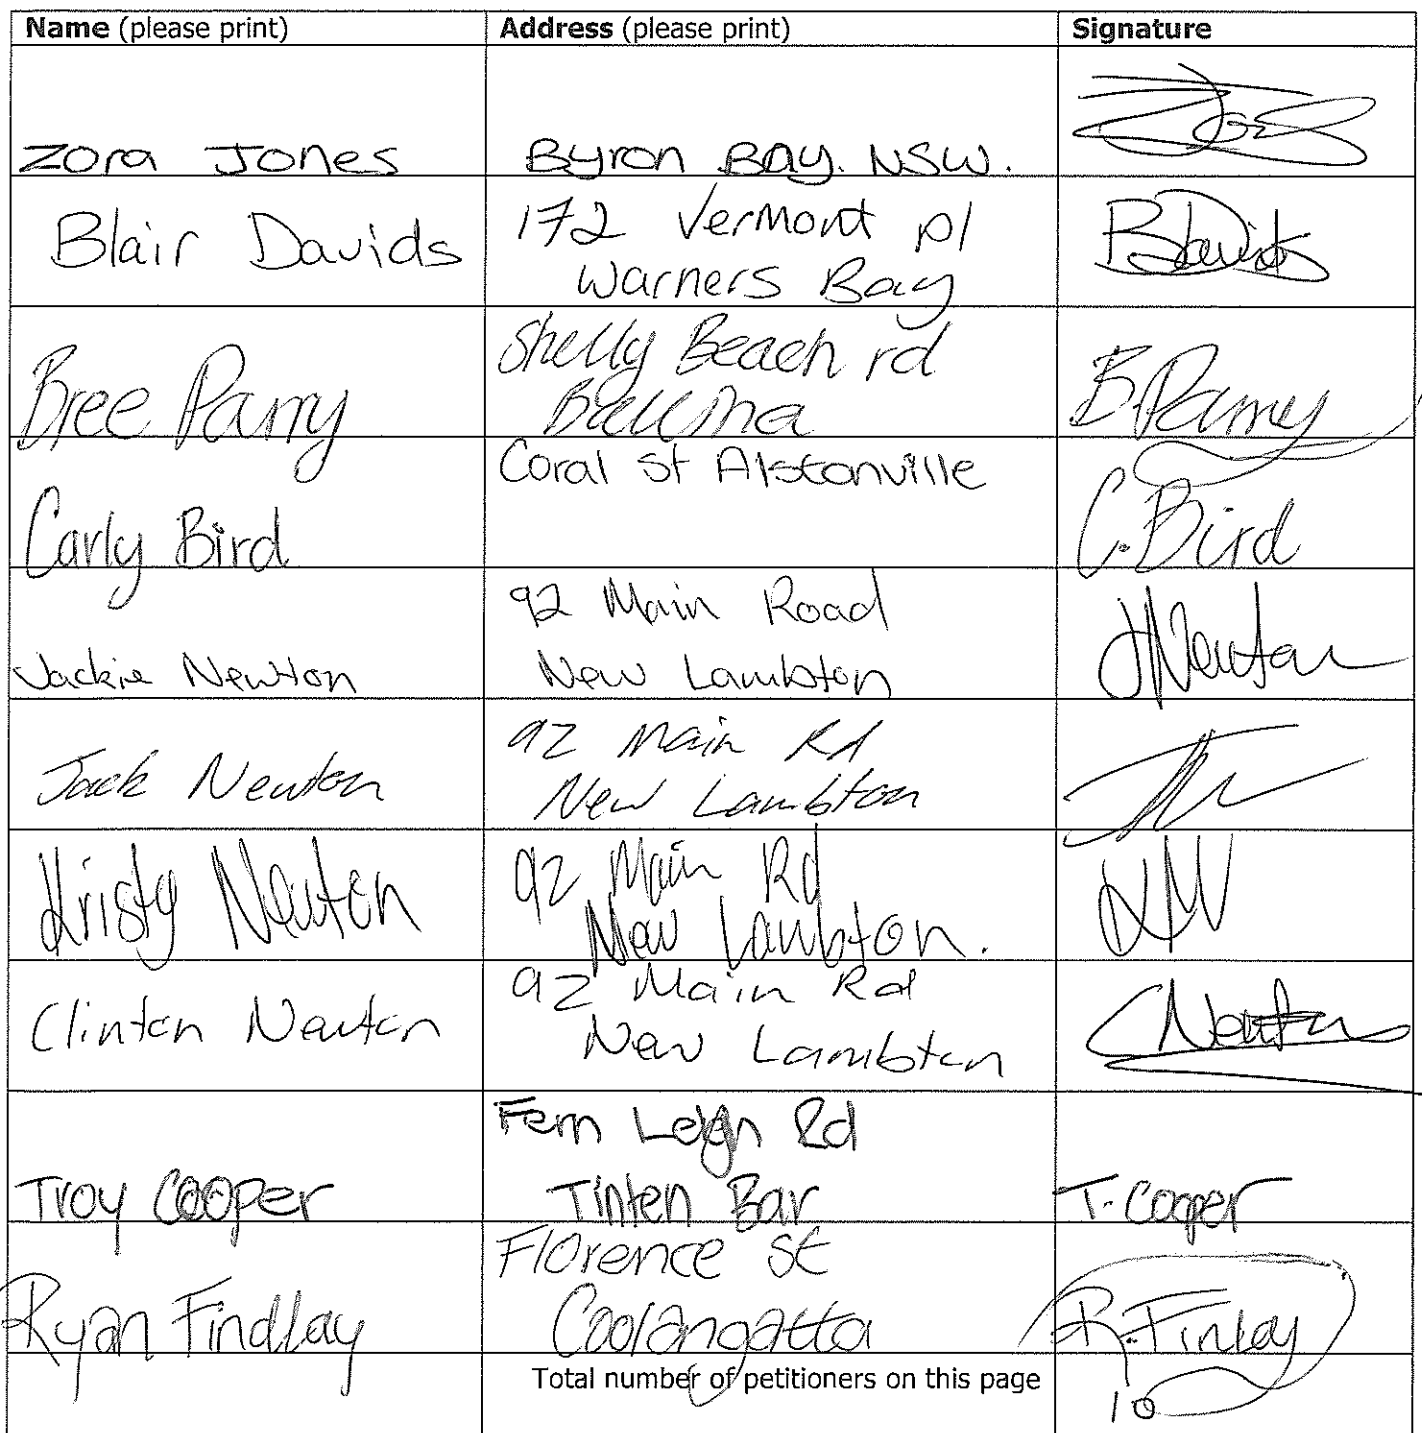 Name (please print) Address (please print) Signature
Zora Jones Byron Bay. NSW.
Blair Davids 172 Vermont pl
Warners Bay BDavids
Bree Parry Shelly Beach rd
Ballina B.Parry
Coral st Alstonville
Carly Bird C.Bird
92 Main Road
Jackie Newton New Lambton JNewton
Jack Newton 92 Main Rd
New Lambton
Kristy Newton 92 Main Rd
New Lambton. KN
Clinton Newton 92 Main Rd
New Lambton CNewton
Fern Leigh Rd
Troy Cooper Tinten Bar T. Cooper
Florence st
Ryan Findlay Coolangatta R.Finlay
Total number of petitioners on this page
10